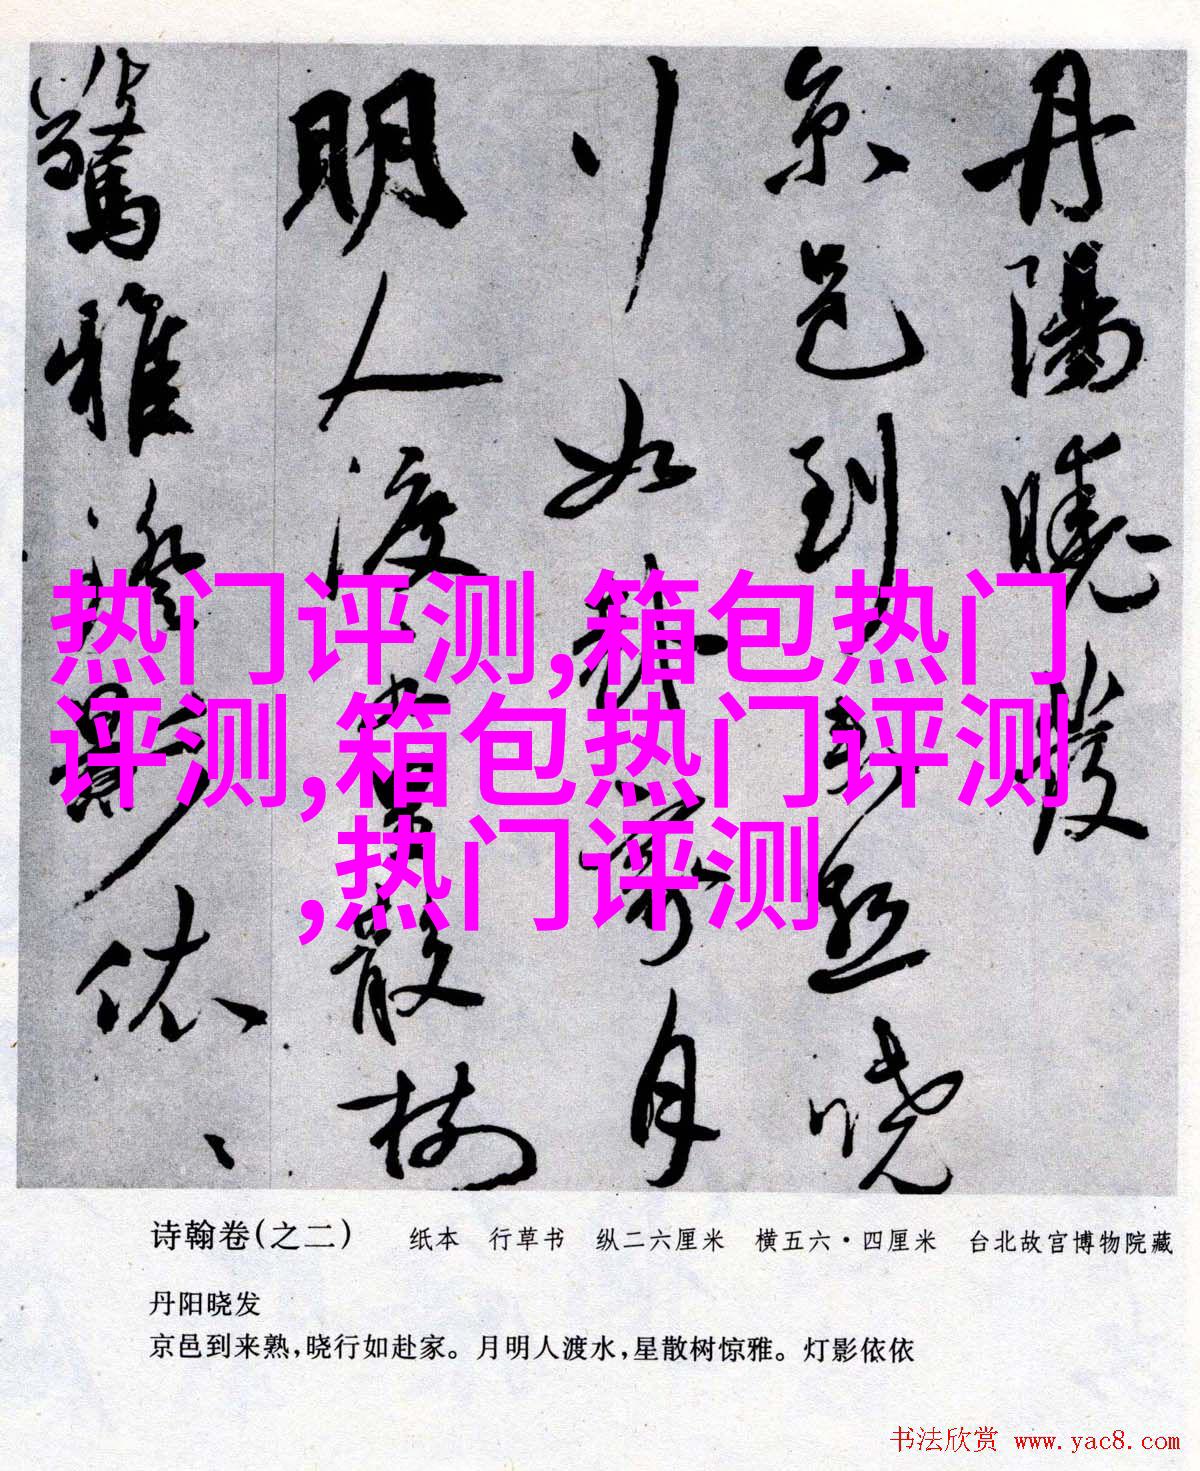 丹陽曉發
京邑到来熟曉
行如赴家月
明人渡水星散樹
驚雅燈影依、、
热门评测,箱包热门
评测,箱包热门评测
,热门评测
诗翰卷(之二) 纸本 行草书 纵二六厘米 横五六·四厘米 台北故宫博物院藏
丹阳晓发
京邑到来熟,晓行如赴家。月明人渡水,星散树惊雅。灯影依依
书法欣赏 www.yac8.com